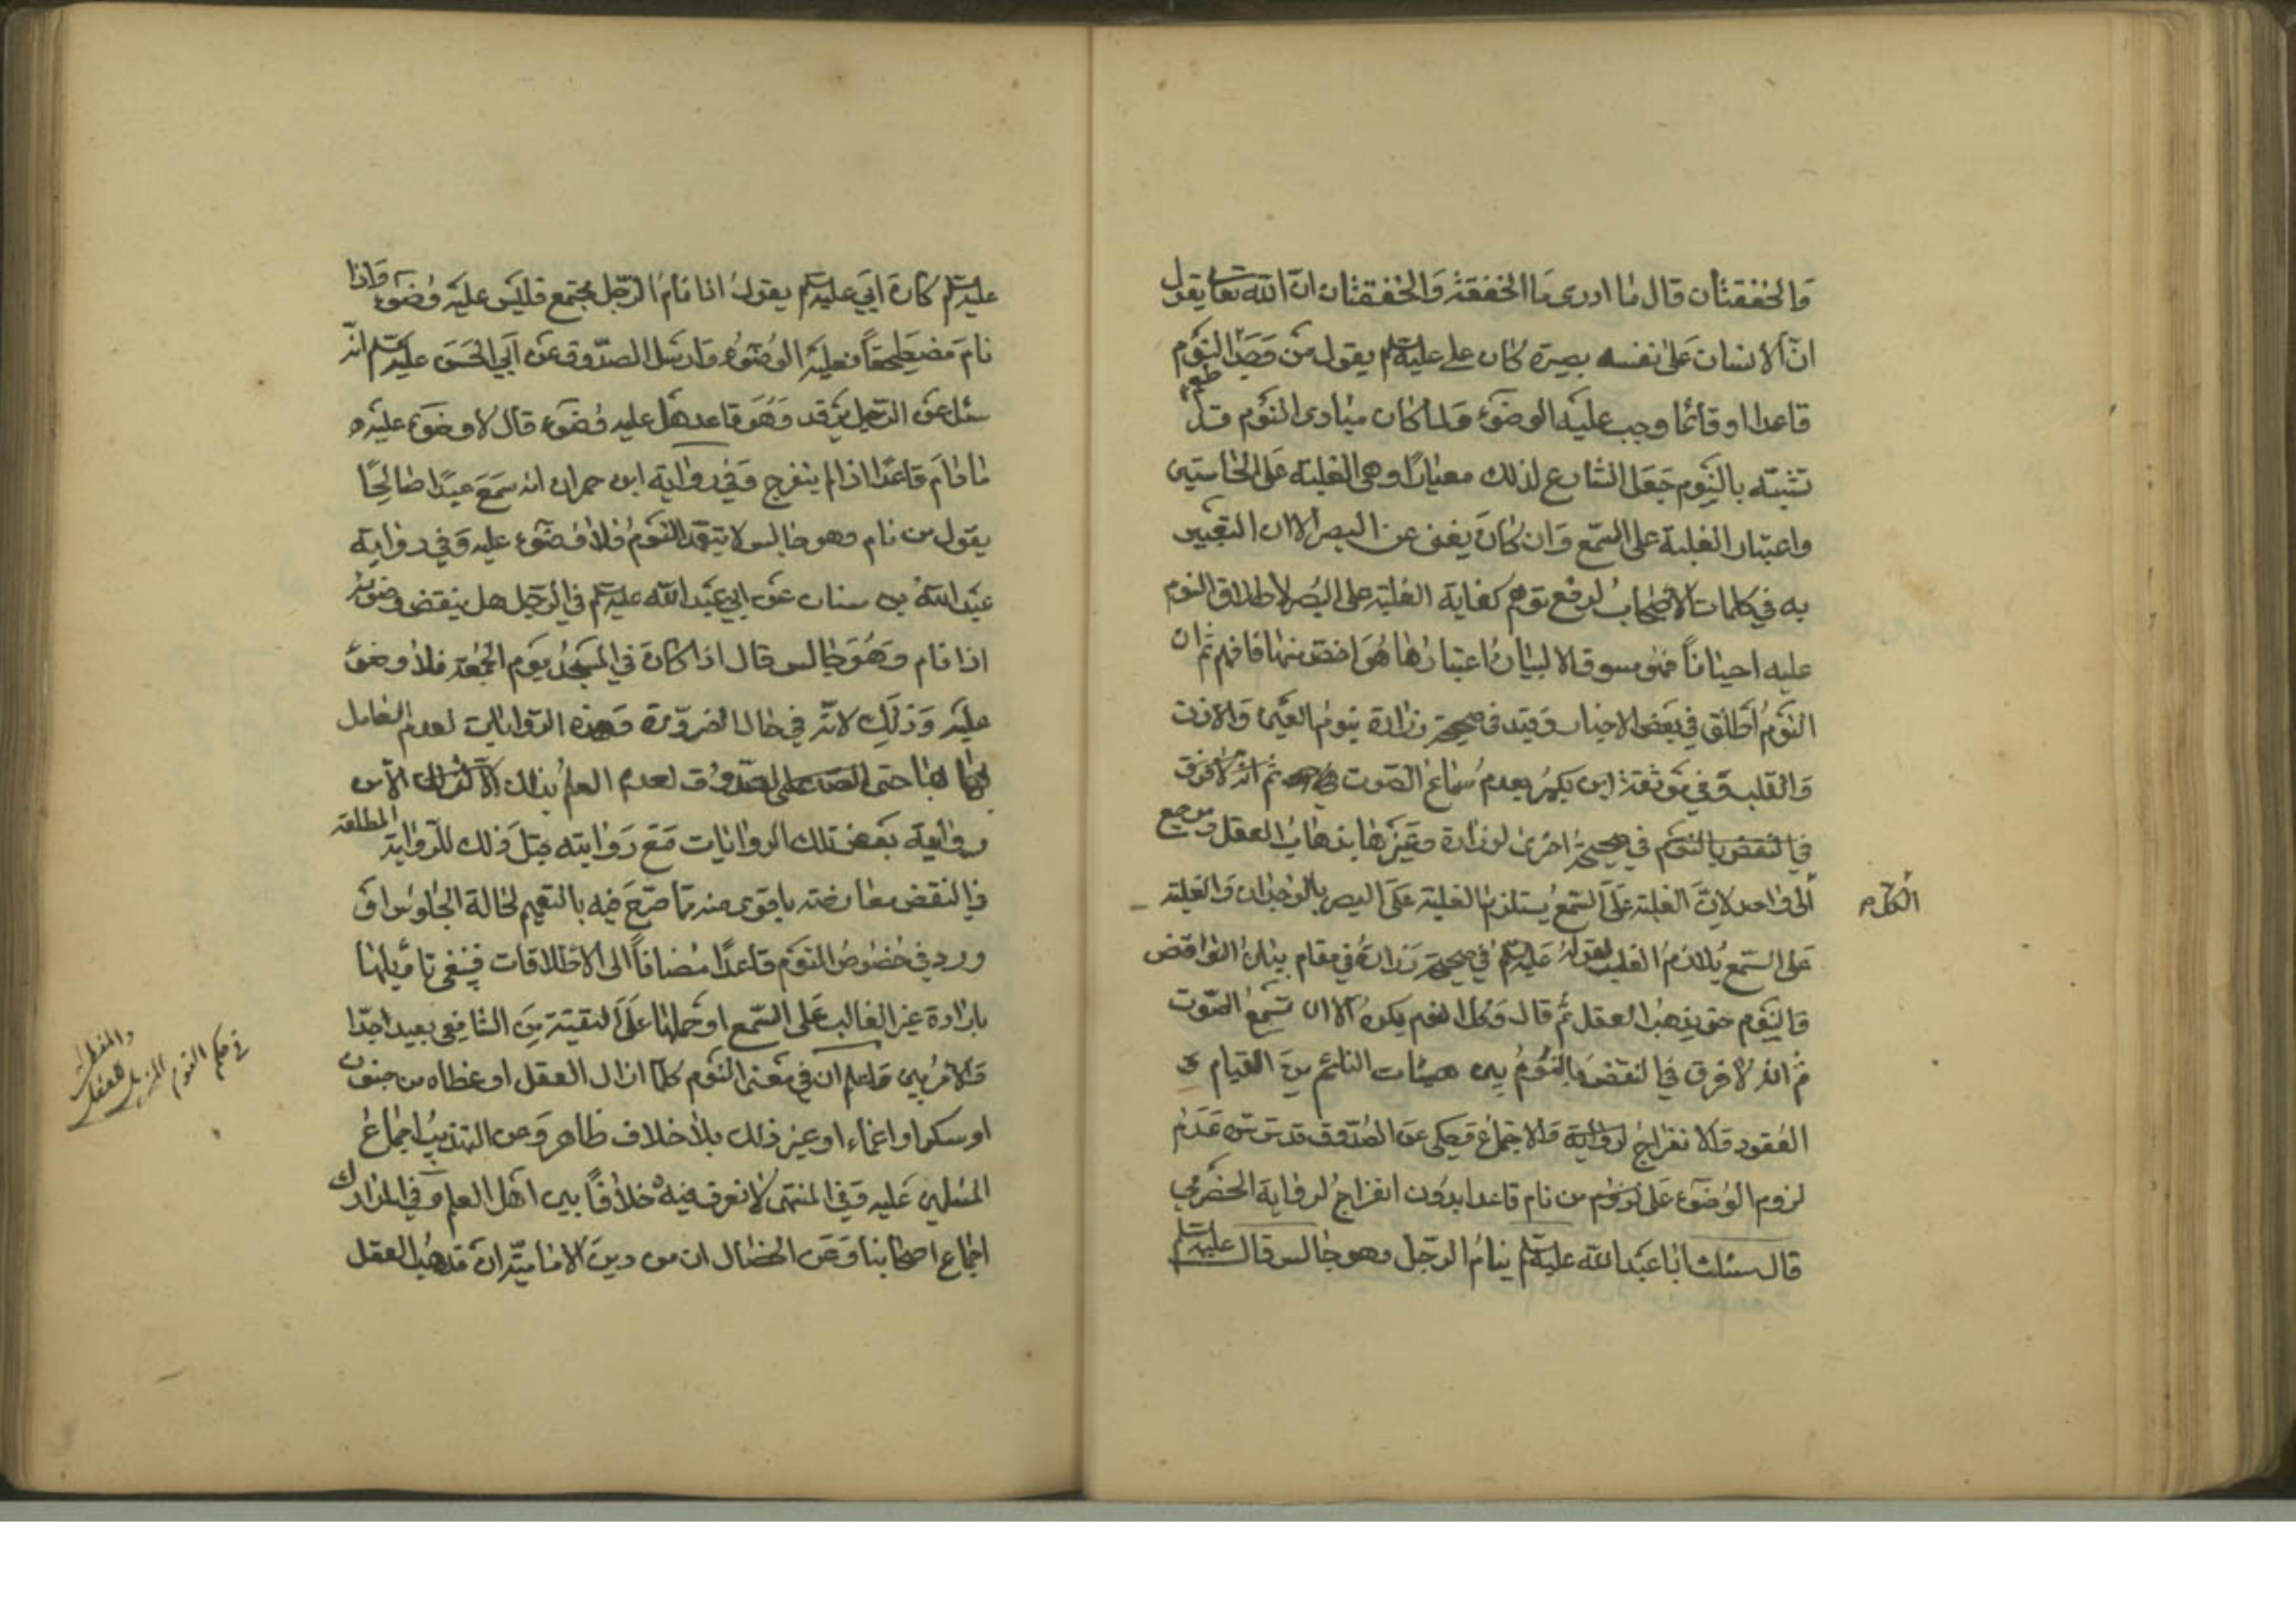 والخفقتان قال ما ادرى ما الخفقة والخفقتان ان الله تعالى يقول
ان الانسان على نفسه بصيرة كان علي عليه السلم يقول من وجد طعم النوم
قاعدا او قائما وجب عليه الوضوء ولما كان مبادى النوم قد
تشتبه بالنوم جعل الشارع لذلك معيارا وهى الغلبة على الحاستين
واعتبار الغلبة على السمع وان كان يغنى عن البصر الا ان التعبير
به في كلمات الاصحاب لدفع توهم كفاية الغلبة على البصر لاطلاق النوم
عليه احيانا فهو مسوق لا لبيان اعتبارها هو اخص منها فافهم ثم ان
النوم اطلق في بعض الاخبار وقيد في صحيحة زرارة بنوم العين والاذن
والقلب وفي موثقة ابن بكير بعدم سماع الصوت ثم انه لا فرق
في النقض بالنوم في صحيحة اخرى لزرارة وغيرها بذهاب العقل ومرجع
الكل
الى واحد لان الغلبة على السمع يستلزم الغلبة على البصر بالوجدان والغلبة
على السمع يلازم القلب لقوله عليه السلم في صحيحة زرارة في مقام بيان النواقض
والنوم حتى يذهب العقل ثم قال وكل النوم يكره الا ان تسمع الصوت
ثم انه لا فرق في النقض بالنوم بين هيئات النائم من القيام و
القعود والانفراج لرواية والاجماع وحكى عن الصدوق قدس سره عدم
لزوم الوضوء على من نام قاعدا بدون انفراج لرواية الحضرمي
قال سئلت ابا عبد الله عليه السلم ينام الرجل وهو جالس قال عليه السلم
عليه السلم كان ابي عليه السلم يقول اذا نام الرجل مجتمع فليس عليه وضوء واذا
نام مضطجعا فعليه الوضوء وارسل الصدوق عن ابي الحسن عليه السلم انه
سئل عن الرجل يرقد وهو قاعد هل عليه وضوء قال لا وضوء عليه
ما دام قاعدا اذا لم ينفرج وفي رواية ابن حمران انه سمع عبدا صالحا
يقول من نام وهو جالس لا يتعمد النوم فلا وضوء عليه وفي رواية
عبد الله بن سنان عن ابي عبد الله عليه السلم في الرجل هل ينقض وضوئه
اذا نام وهو جالس قال اذا كان في المسجد يوم الجمعة فلا وضوء
عليه وذلك لانه في حال الضرورة وهذه الروايات لعدم العامل
بها حتى الصدوق لعدم العلم بذلك الا من
رواية بعض تلك الروايات مع روايته قبل ذلك للرواية المطلقة
في النقض معارضته باقوى منه مما صرح فيه بالتعميم لحالة الجلوس او
ورد في خصوص النوم قاعدا مضافا الى الاطلاقات فينبغى تاويلها
بارادة غير الغالب على السمع او حملها على التقية من الشافعى بعيد جدا
والامر بين واعلم ان في معنى النوم كلما ازال العقل او غطاه من جنون
او سكر او اغماء او غير ذلك بلا خلاف ظاهر وعن التهذيب اجماع
المسلمين عليه وفي المنتهى لا نعرف فيه خلافا بين اهل العلم وفي المدارك
اجماع اصحابنا وعن الخصال ان من دين الامامية ان مذهب العقل
في حكم النوم المزيل للعقل